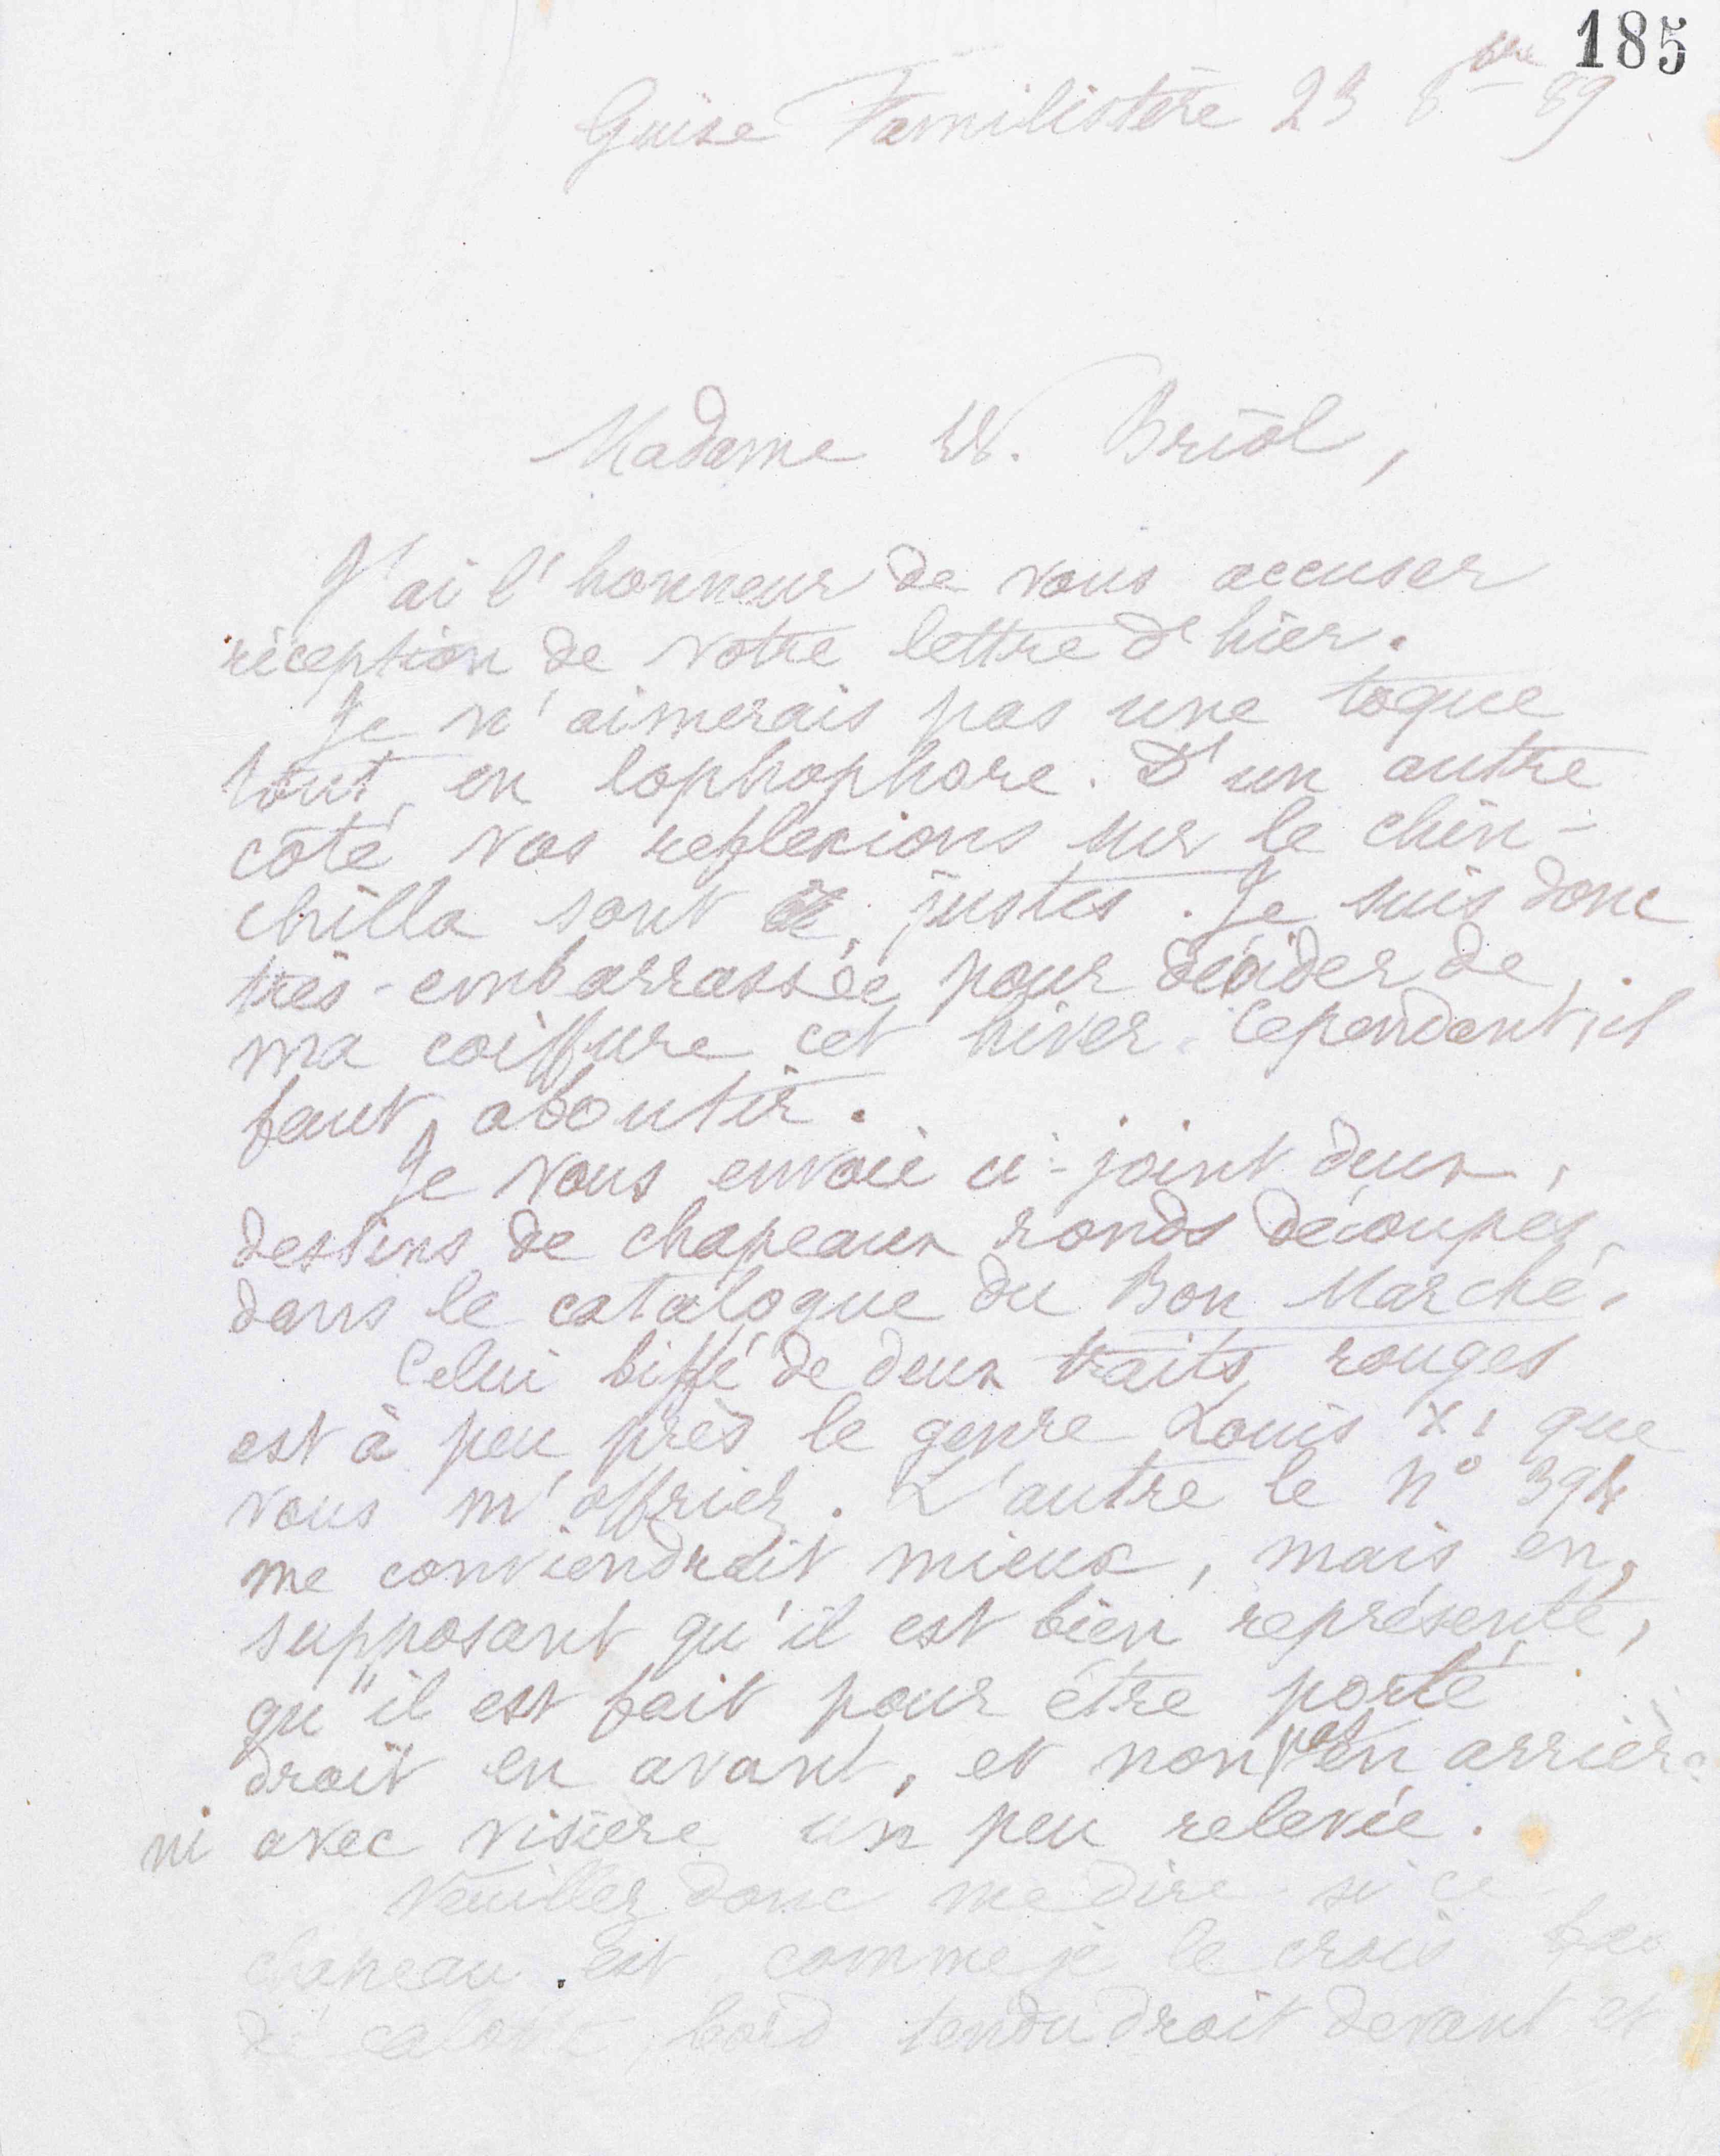 185
Guise Familistère 23 8bre 89
Madame W. Briol,
J'ai l'honneur de vous accuser
réception de votre lettre d'hier.
Je n'aimerais pas une toque
tout en lophophore. D'un autre
côté vos reflexions sur le chin-
chilla sont justes. Je suis donc
très-embarrassée pour décider de
ma coiffure cet hiver. Cependant, il
faut aboutir.
Je vous envoie ci-joint deux
dessins de chapeaux ronds découpés
dans le catalogue du Bon Marché.
Celui biffé de deux traits rouges
est à peu près le genre Louis XI que
vous m'offriez. L'autre le n° 394
me conviendrait mieux, mais en
supposant qu'il est bien représenté,
qu'il est fait pour être porté
droit en avant, et non en arrière
ni avec visière un peu relevée.
Veuillez donc me dire si ce
chapeau est comme je le crois bas
de calotte, bord tendu droit devant et